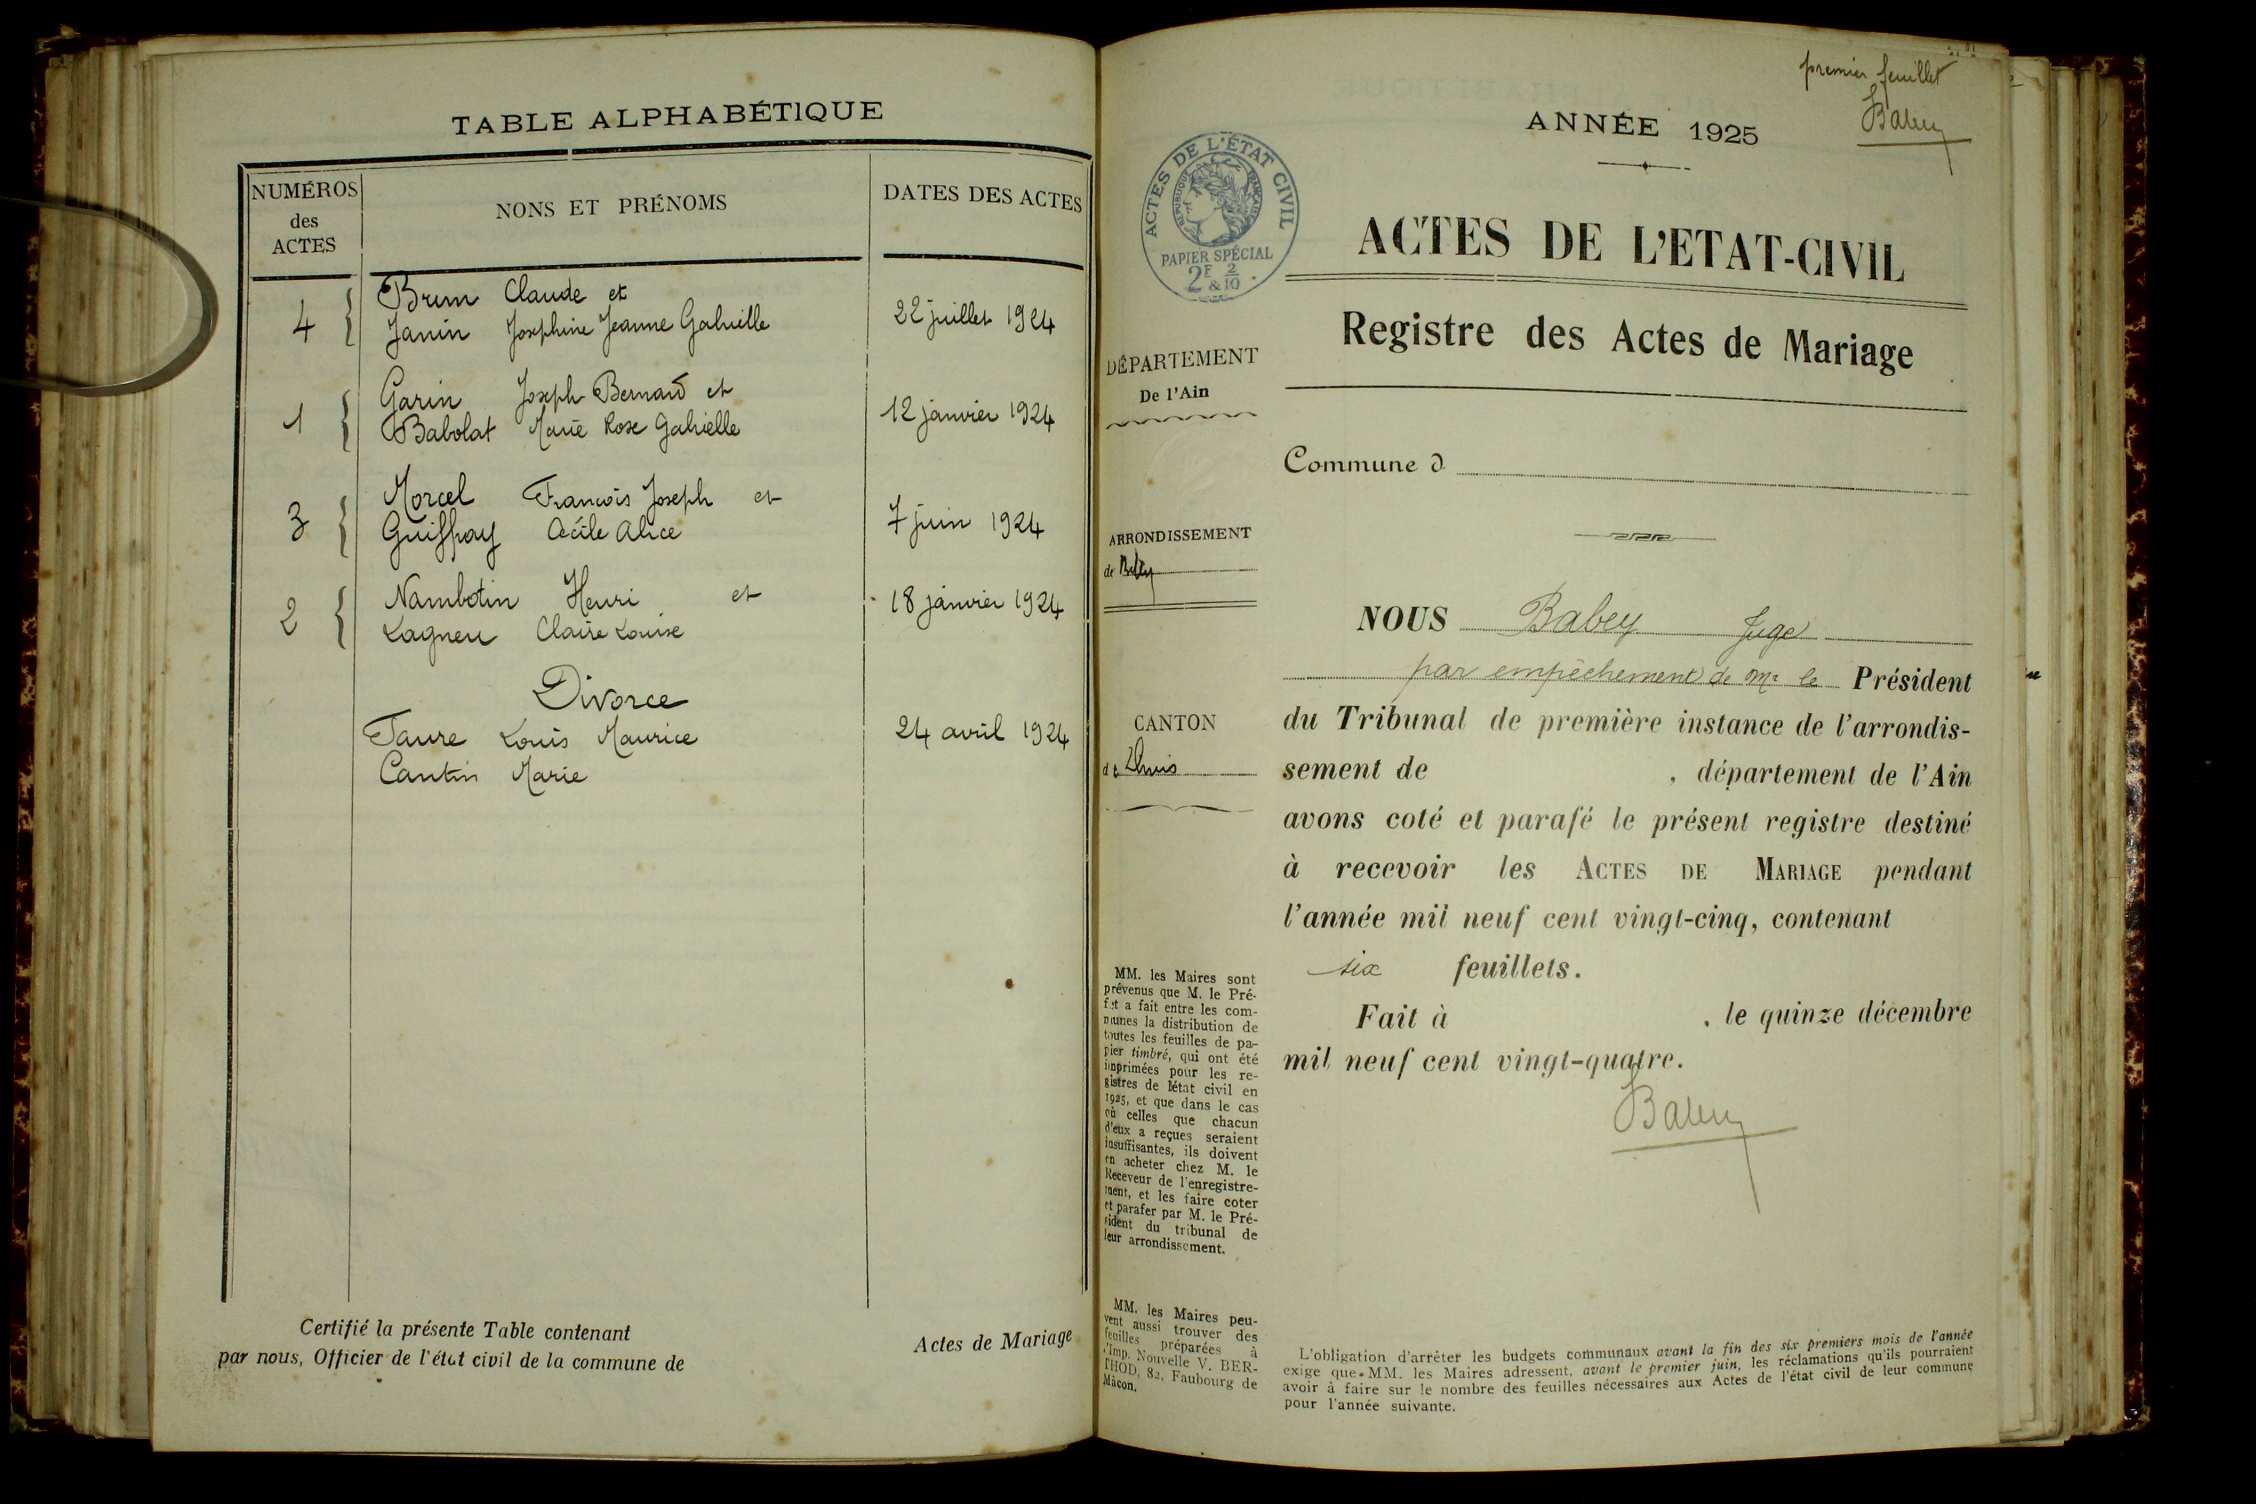 TABLE ALPHABÉTIQUE
NUMÉROS
des
ACTES
NONS ET PRÉNOMS
DATES DES ACTES
4
Brun Claude et
Janin Joséphine Jeanne Gabrielle
22 juillet 1924
1
Garin Joseph Bernard et
Babolat Marie Rose Gabrielle
12 janvier 1924
3
Morcel François Joseph et
Guiffray Cécile Alice
7 juin 1924
2
Nambotin Henri et
Lagneu Claire Louise
18 janvier 1924
Divorce
Faure Louis Maurice
Cantin Marie
24 avril 1924
Certifié la présente Table contenant
Actes de Mariage
par nous, Officier de l'état civil de la commune de
premier feuillet
Babey
ANNÉE 1925
ACTES DE L'ÉTAT CIVIL
RÉPUBLIQUE FRANÇAISE
PAPIER SPÉCIAL
2F & 2/10
ACTES DE L'ETAT-CIVIL
Registre des Actes de Mariage
DÉPARTEMENT
De l'Ain
Commune d
ARRONDISSEMENT
de Belley
CANTON
de Lhuis
NOUS Babey Juge
par empêchement de Mr le Président
du Tribunal de première instance de l'arrondis-
sement de , département de l'Ain
avons coté et parafé le présent registre destiné
à recevoir les ACTES DE MARIAGE pendant
l'année mil neuf cent vingt-cinq, contenant
six feuillets.
Fait à , le quinze décembre
mil neuf cent vingt-quatre.
Babey
MM. les Maires sont
prévenus que M. le Pré-
fet a fait entre les com-
munes la distribution de
toutes les feuilles de pa-
pier timbré, qui ont été
imprimées pour les re-
gistres de l'état civil en
1925, et que dans le cas
où celles que chacun
d'eux a reçues seraient
insuffisantes, ils doivent
en acheter chez M. le
Receveur de l'enregistre-
ment, et les faire coter
et parafer par M. le Pré-
sident du tribunal de
leur arrondissement.
MM. les Maires peu-
vent aussi trouver des
feuilles préparées à
l'Imp. Nouvelle V. BER-
THOD, 82, Faubourg de
Mâcon.
L'obligation d'arrêter les budgets communaux avant la fin des six premiers mois de l'année
exige que MM. les Maires adressent, avant le premier juin, les réclamations qu'ils pourraient
avoir à faire sur le nombre des feuilles nécessaires aux Actes de l'état civil de leur commune
pour l'année suivante.